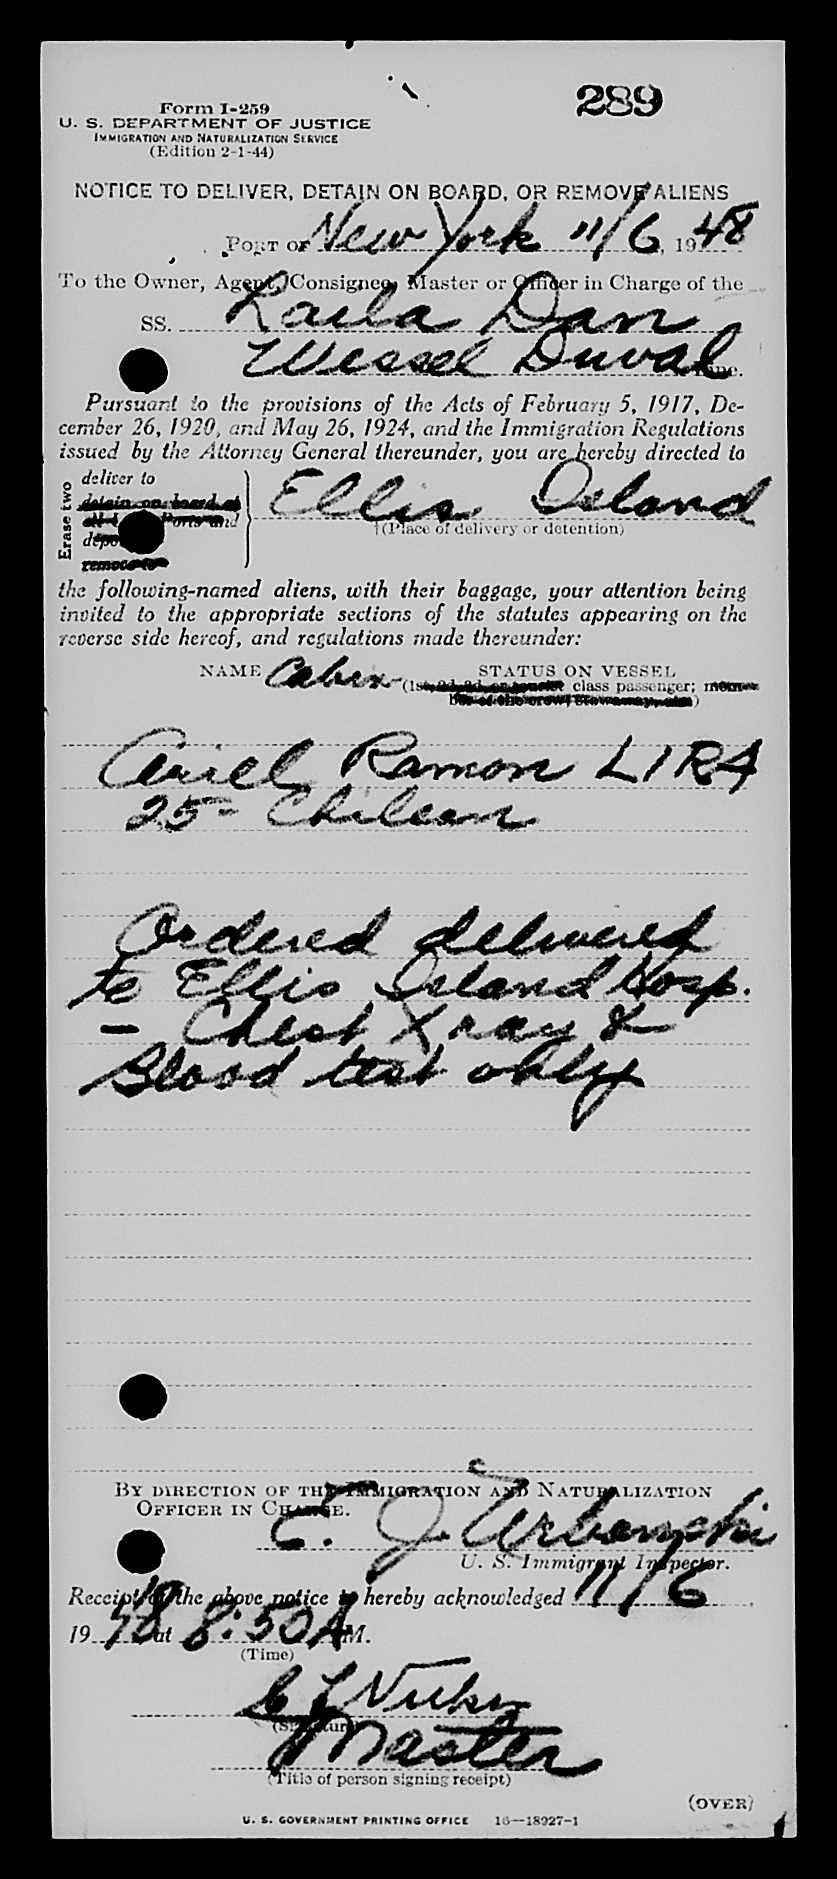 289
Form I-259
U. S. DEPARTMENT OF JUSTICE
IMMIGRATION AND NATURALIZATION SERVICE
(Edition 2-1-44)
NOTICE TO DELIVER, DETAIN ON BOARD, OR REMOVE ALIENS
PORT OF New York 11/6, 1948
To the Owner, Agent, Consignee, Master or Officer in Charge of the
SS. Laila Dan
Wessel Duval Line.
Pursuant to the provisions of the Acts of February 5, 1917, De-
cember 26, 1920, and May 26, 1924, and the Immigration Regulations
issued by the Attorney General thereunder, you are hereby directed to
Erase two
deliver to
detain on board at Ellis Island
all Ports and †(Place of delivery or detention)
remove to
the following-named aliens, with their baggage, your attention being
invited to the appropriate sections of the statutes appearing on the
reverse side hereof, and regulations made thereunder:
NAME Cabin STATUS ON VESSEL
(1st, 2d, 3d, or tourist class passenger; mem-
ber of the crew, stowaway, etc.)
Ariel Ramon LIRA
25- Chilean
Ordered delivered
to Ellis Island Hosp.
- Chest Xray &
Blood test only
BY DIRECTION OF THE IMMIGRATION AND NATURALIZATION
OFFICER IN CHARGE.
E. J. Urbanski
U. S. Immigrant Inspector.
Receipt of the above notice is hereby acknowledged 11/6,
1948 at 8:50 A M.
(Time)
(Signature)
Master
(Title of person signing receipt)
(OVER)
U. S. GOVERNMENT PRINTING OFFICE 16—18927-1